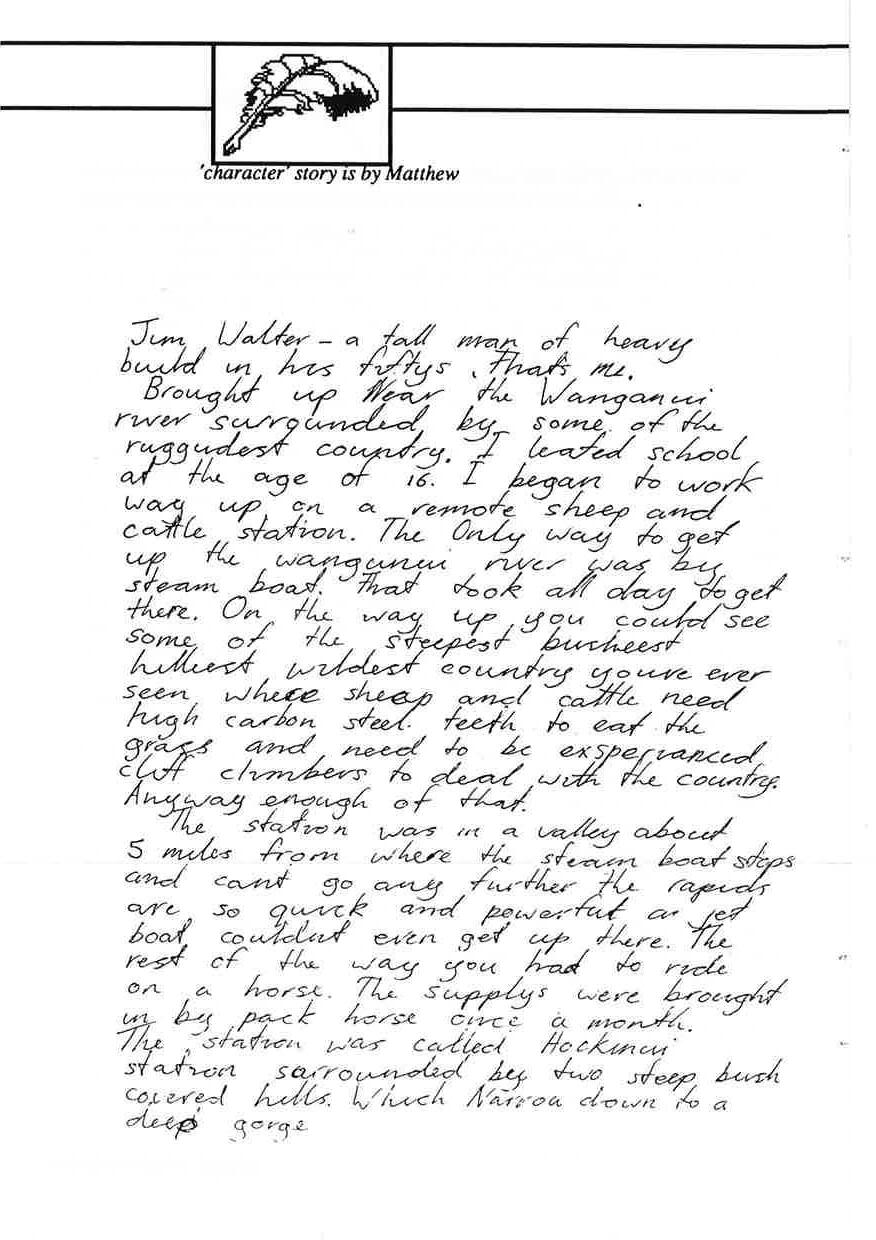 'character' story is by Matthew
Jim Walter - a tall man of heavy
build in his fiftys. That's me.
Brought up Near the Wanganui
river surrounded by some of the
ruggudest country. I leated school
at the age of 16. I began to work
way up on a remote sheep and
cattle station. The Only way to get
up the wangunui river was by
steam boat. That took all day to get
there. On the way up you could see
some of the steepest busheest
hilliest wildest country youve ever
seen where sheap and cattle need
high carbon steel teeth to eat the
grass and need to be exspervanced
cliff climbers to deal with the country.
Anyway enough of that.
The station was in a valley about
5 miles from where the steam boat stops
and cant go any further the rapids
are so quick and powerful a jet
boat couldnt even get up there. The
rest of the way you had to ride
on a horse. The supplys were brought
in by pack horse once a month.
The station was called Hockinui
station sarrounded by two steep bush
covered hills. Which Narrou down to a
deep gorge